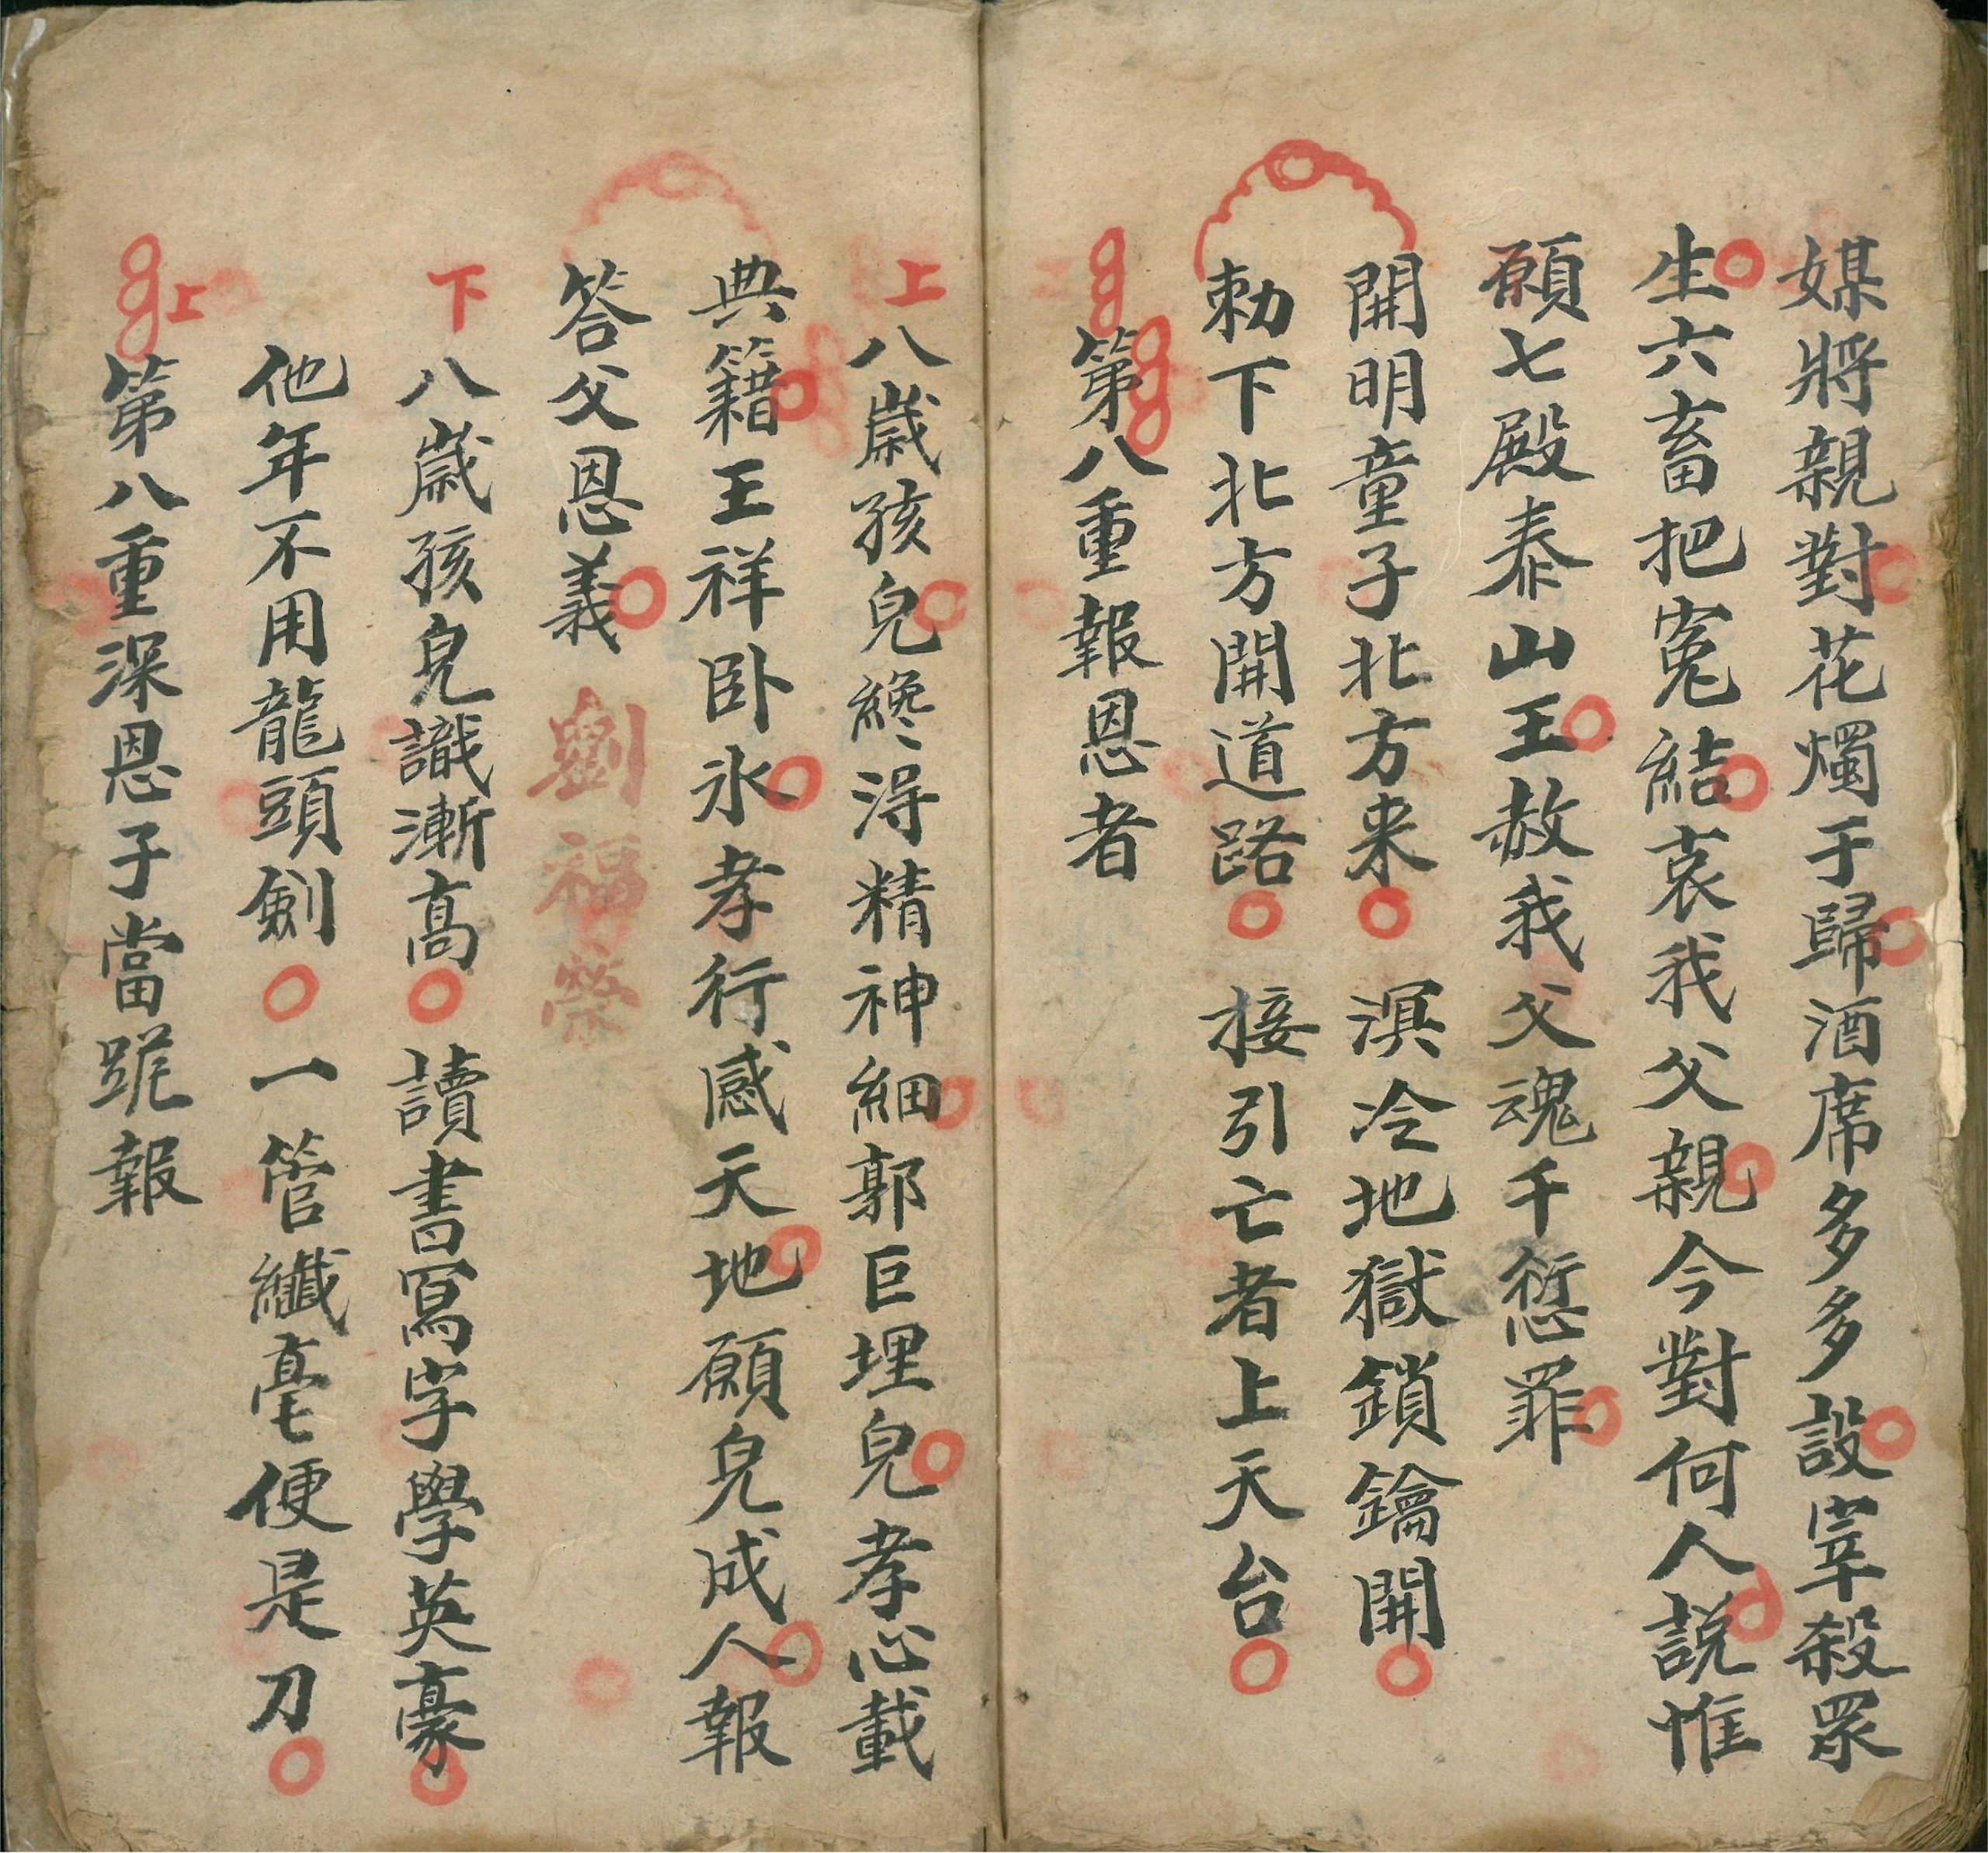 媒將親對花燭于歸酒席多多設宰殺眾
生六畜把寃結哀我父親今對何人説惟
願七殿泰山王赦我父魂千愆罪
開明童子北方来 溟冷地獄鎖鑰開
勅下北方開道路 接引亡者上天台
第八重報恩者
上 八歲孩兒纔淂精神細郭巨埋兒孝心載
典籍王祥卧氷孝行感天地願兒成人報
答父恩義 劉福榮
下 八歲孩兒識漸高 讀書寫字學英豪
他年不用龍頭劍 一管纖毫便是刀
上 第八重深恩子當跪報